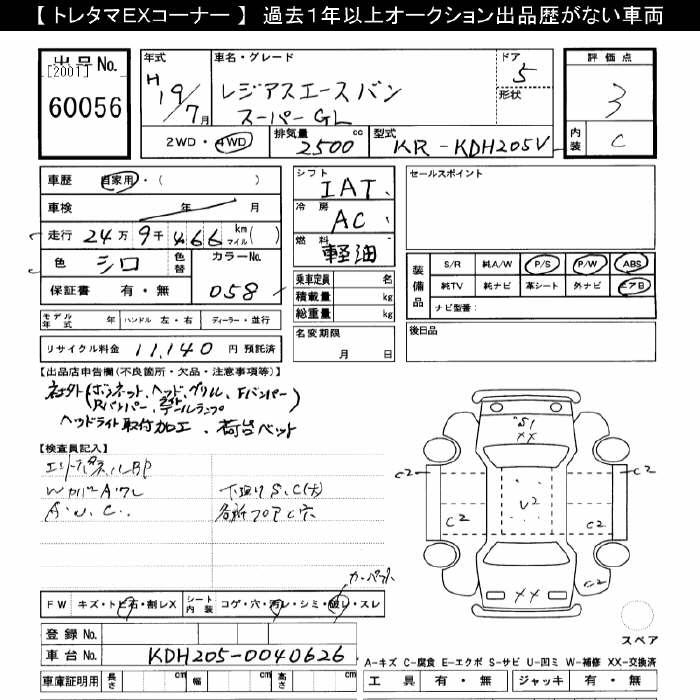 【 トレタマEXコーナー 】 過去１年以上オークション出品歴がない車両
出品No.
[2001]
60056
年式
H
19/7月
車名・グレード
レジアスエースバン
スーパーGL
ドア
5
形状
評価点
3
内装
C
2WD・4WD
排気量
2500 cc
型式
KR-KDH205V
車歴
自家用・( )
車検
年 月
走行
24万9千466 km マイル( )
色
シロ
色替
カラーNo.
058
保証書 有・無
シフト
IAT
冷房
AC
燃料
軽油
乗車定員 名
積載量 kg
総重量 kg
名変期限
月 日
セールスポイント
装備品
S/R 純A/W P/S P/W ABS
純TV 純ナビ 革シート 外ナビ エアB
ナビ型番:
後日品
モデル年式 年 ハンドル 左・右 ディーラー・並行
リサイクル料金 11,140 円 預託済
【出品店申告欄(不良箇所・欠品・注意事項等)】
社外(ボンネット、ヘッド、グリル、Fバンパー
Rバンパー、テールランプ)
ヘッドライト取付加工、荷台ベット
【検査員記入】
下廻りS、C(大)
A・W、C、
カーペット
FW キズ・トビ石・割レX
シート内装 コゲ・穴・汚レ・シミ・破レ・スレ
登録No.
車台No. KDH205-0040626
車庫証明用 長さ cm 幅 cm 高さ cm
S1
XX
C2
C2
C2
C2
U2
C2
XX
スペア
A-キズ C-腐食 E-エクボ S-サビ U-凹ミ W-補修 XX-交換済
工具 有・無 ジャッキ 有・無